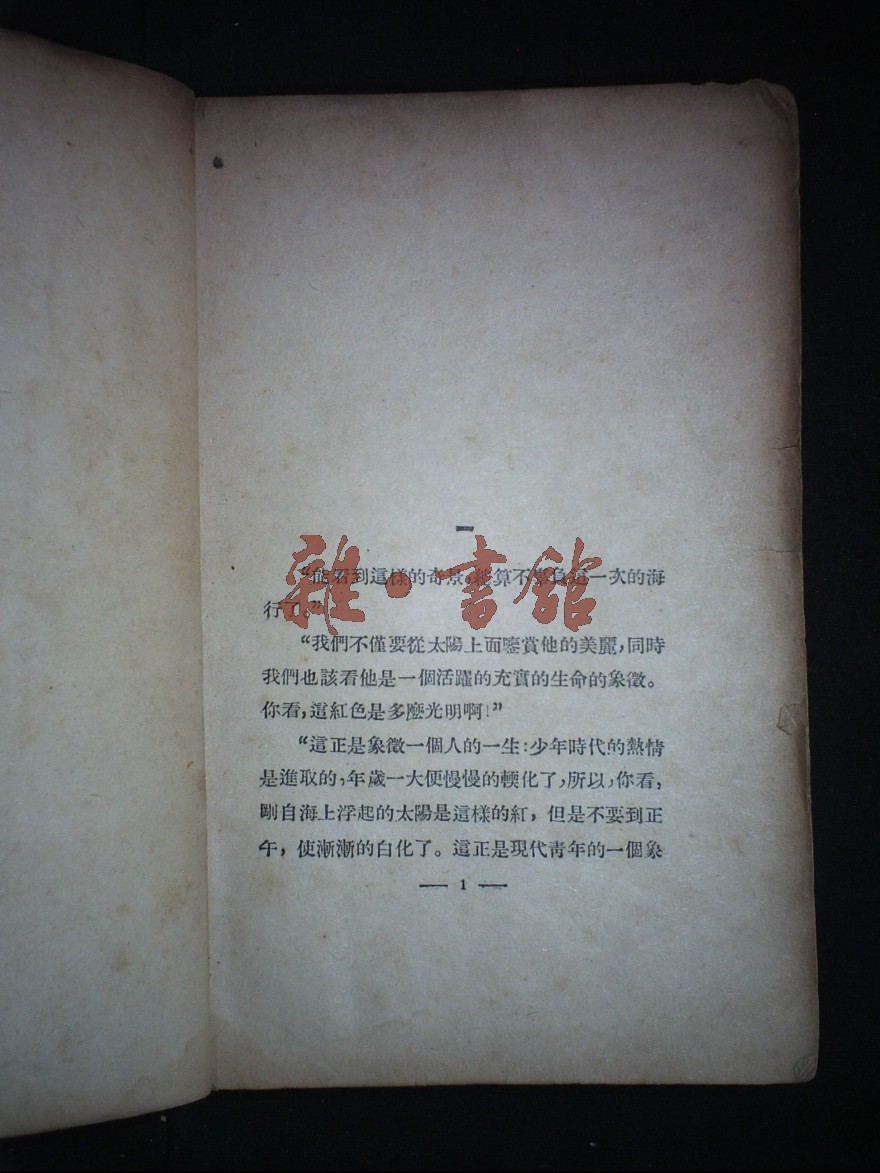 一
“能看到這樣的奇景,總算不辜負這一次的海
行了。”
“我們不僅要從太陽上面鑒賞他的美麗,同時
我們也該看他是一個活躍的充實的生命的象徵。
你看,這紅色是多麽光明啊!”
“這正是象徵一個人的一生:少年時代的熱情
是進取的,年歲一大便慢慢的輭化了,所以,你看,
剛自海上浮起的太陽是這樣的紅,但是不要到正
午,使漸漸的白化了。這正是現代靑年的一個象
— 1 —
雜·書館